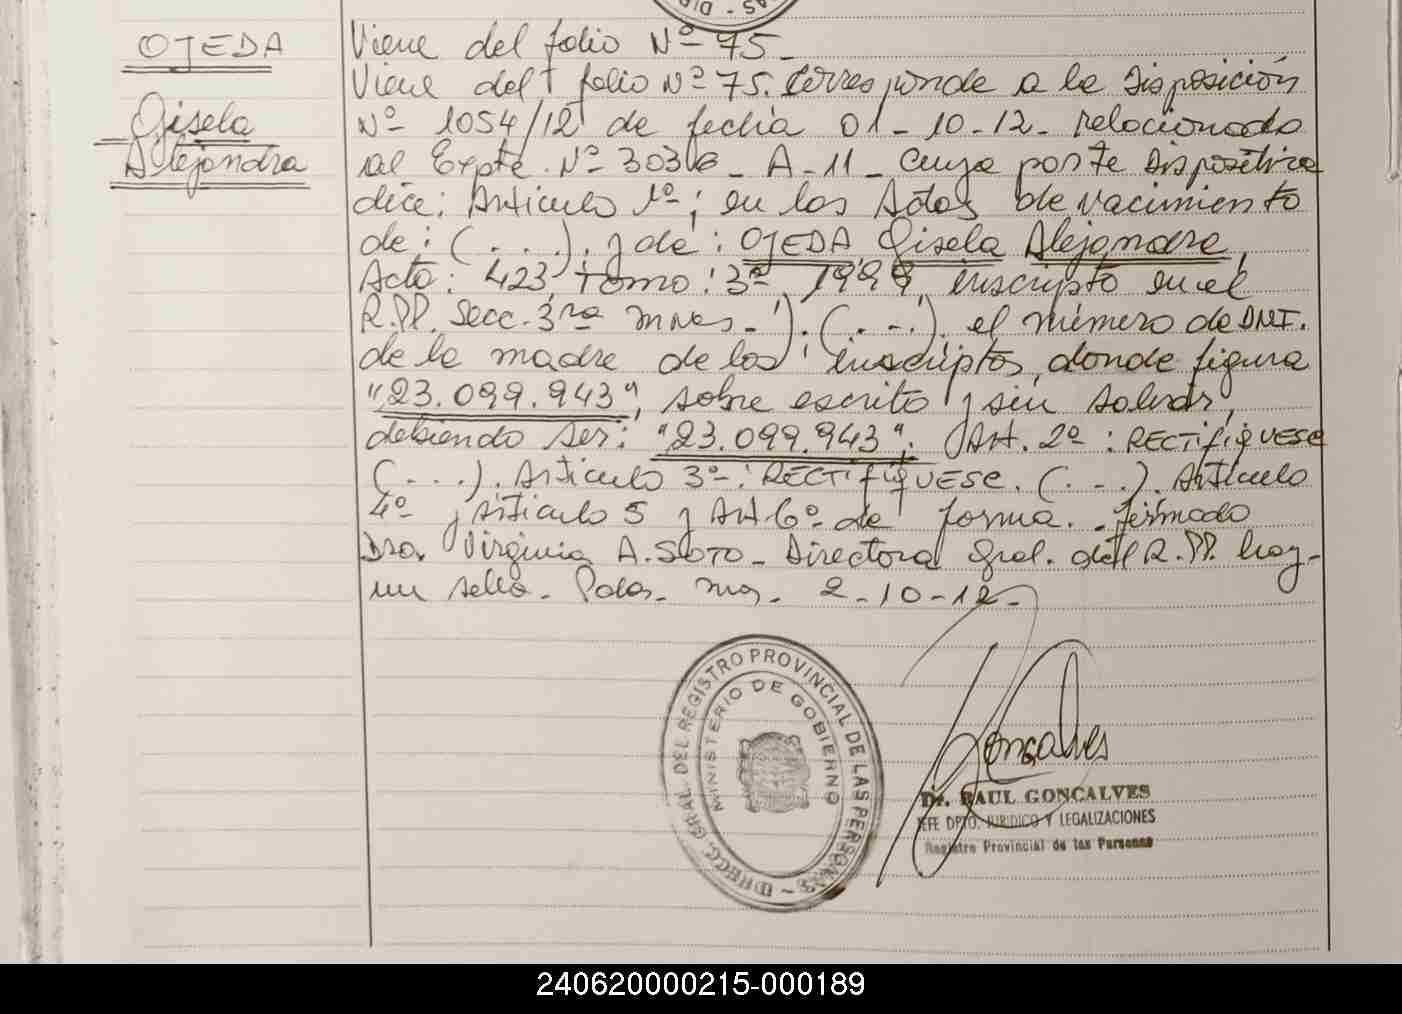 OJEDA
Gisela
Alejandra
Viene del folio Nº 75-
Viene del folio Nº 75. Corresponde a la Disposición
Nº 1054/12 de fecha 01-10-12- relacionado
al Expte. Nº - A-11- Cuya parte Dispositiva
dice: Articulo 1º; en las Actas de nacimiento
de: (....). y de: OJEDA, Gisela Alejandra,
Acta: 423, tomo: 3º, 1999, inscripto en el
R.PP. Secc. 3ra -). (. - .). el número de DNI.
de la madre de los inscriptos, donde figura
"23.099.943", sobre escrito y sin salvar,
debiendo ser: "23.099.943". Art. 2º: RECTIFIQUESE
(....). Articulo 3º: RECTIFIQUESE. (. - .). Articulo
4º y Articulo 5 y Art 6º de forma. firmado
Dra. Virginia A. SOTO- Directora Gral. del R.PP. hay-
un sello. Pdas. Mns. 2-10-12-
DIRECC. GRAL. DEL REGISTRO PROVINCIAL DE LAS PERSONAS -
MINISTERIO DE GOBIERNO
Goncalves
Dr. RAUL GONCALVES
JEFE DPTO. JURIDICO Y LEGALIZACIONES
Registro Provincial de las Personas
240620000215-000189